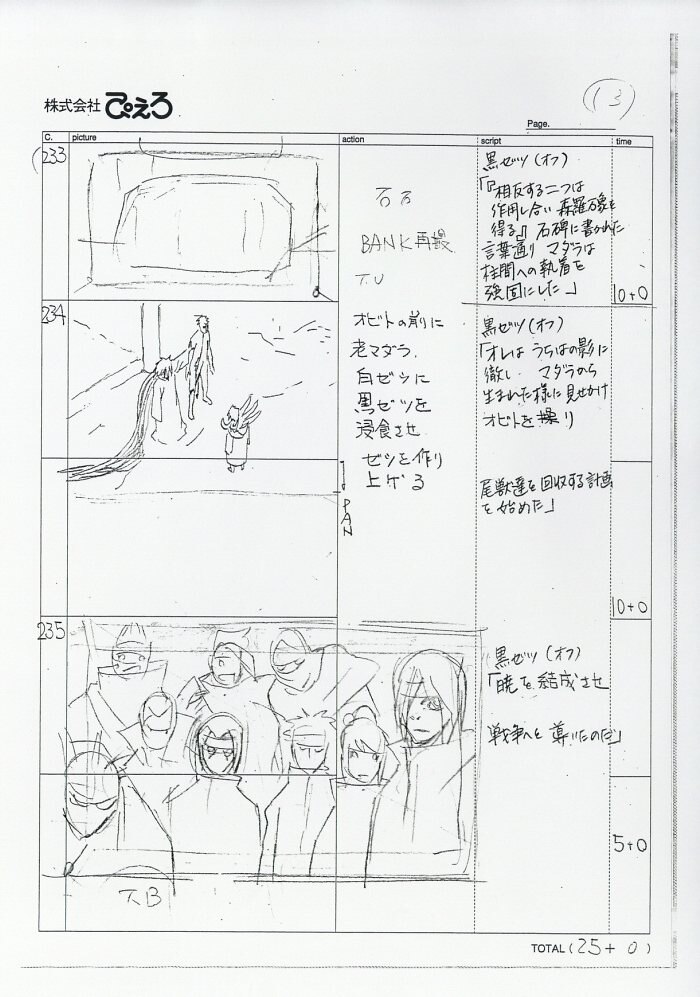 株式会社 ぴえろ
(13)
Page.
C.
picture
action
script
time
233
BANK再撮
T.U
黒ゼツ(オフ)
「『相反する二つは
作用し合い 森羅万象を
得る』石碑に書かれた
言葉通り マダラは
柱間への執着を
強固にした」
10+0
234
オビトの前に
老マダラ.
白ゼツに
黒ゼツを
浸食させ
ゼツを作り
上げる
PAN
黒ゼツ(オフ)
「オレは うちはの影に
徹し. マダラから
生まれた様に見せかけ
オビトを操り
尾獣達を回収する計画
を始めた」
10+0
235
T.B
黒ゼツ(オフ)
「暁を結成させ
戦争へと導いたのだ」
5+0
TOTAL (25+0)